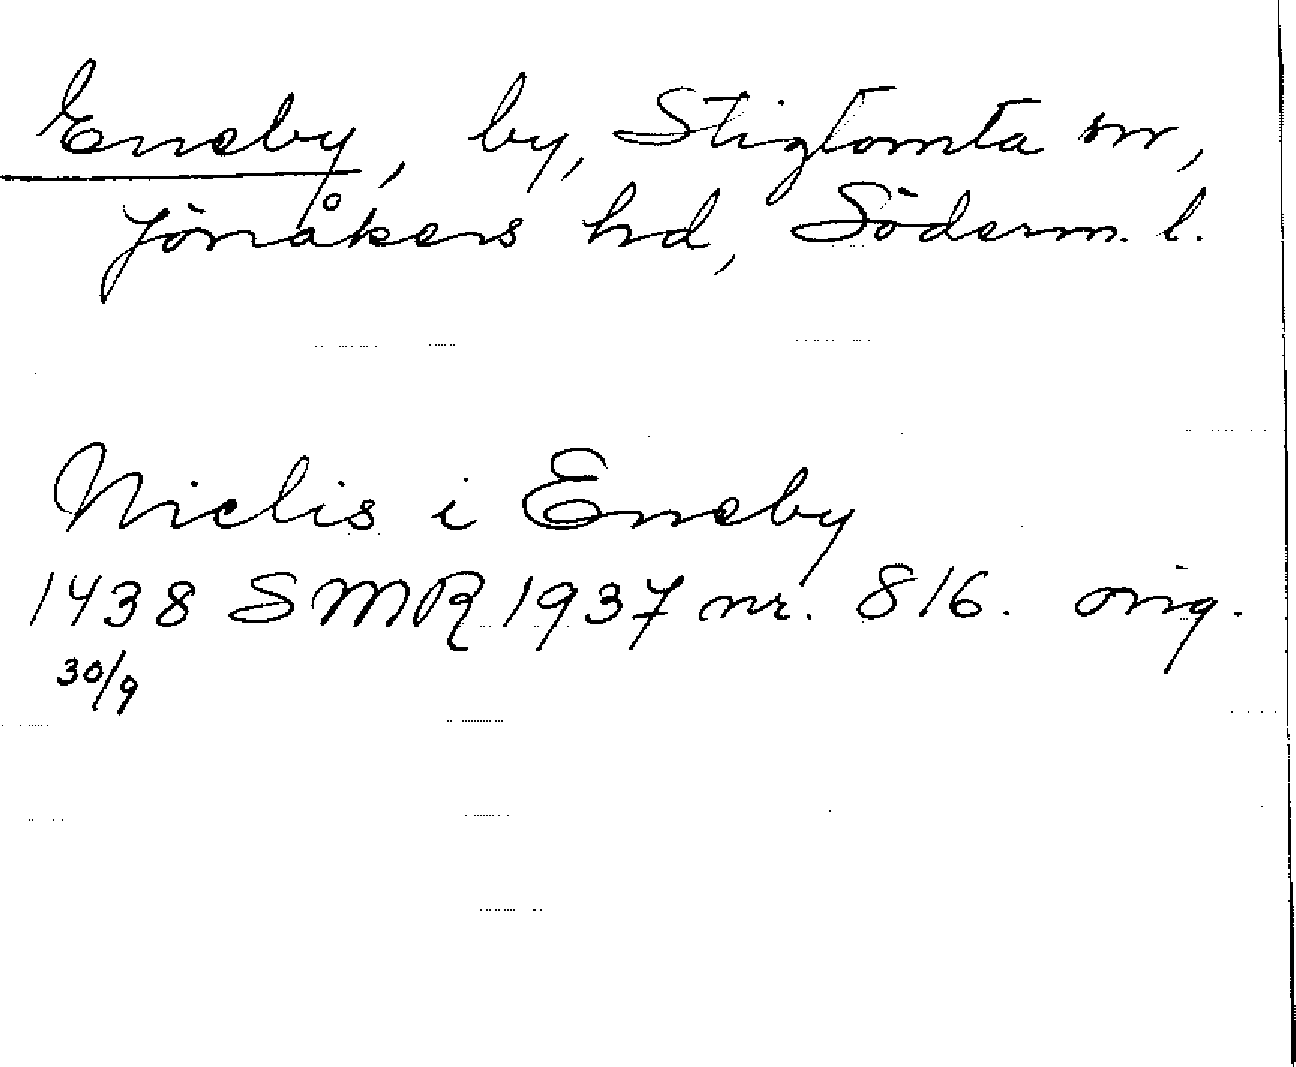 Eneby, by, Stigtomta sn,
Jönåkers hd, Söderm. l.
Nielis i Eneby
1438 SMR 1937 nr. 816. orig.
30/9